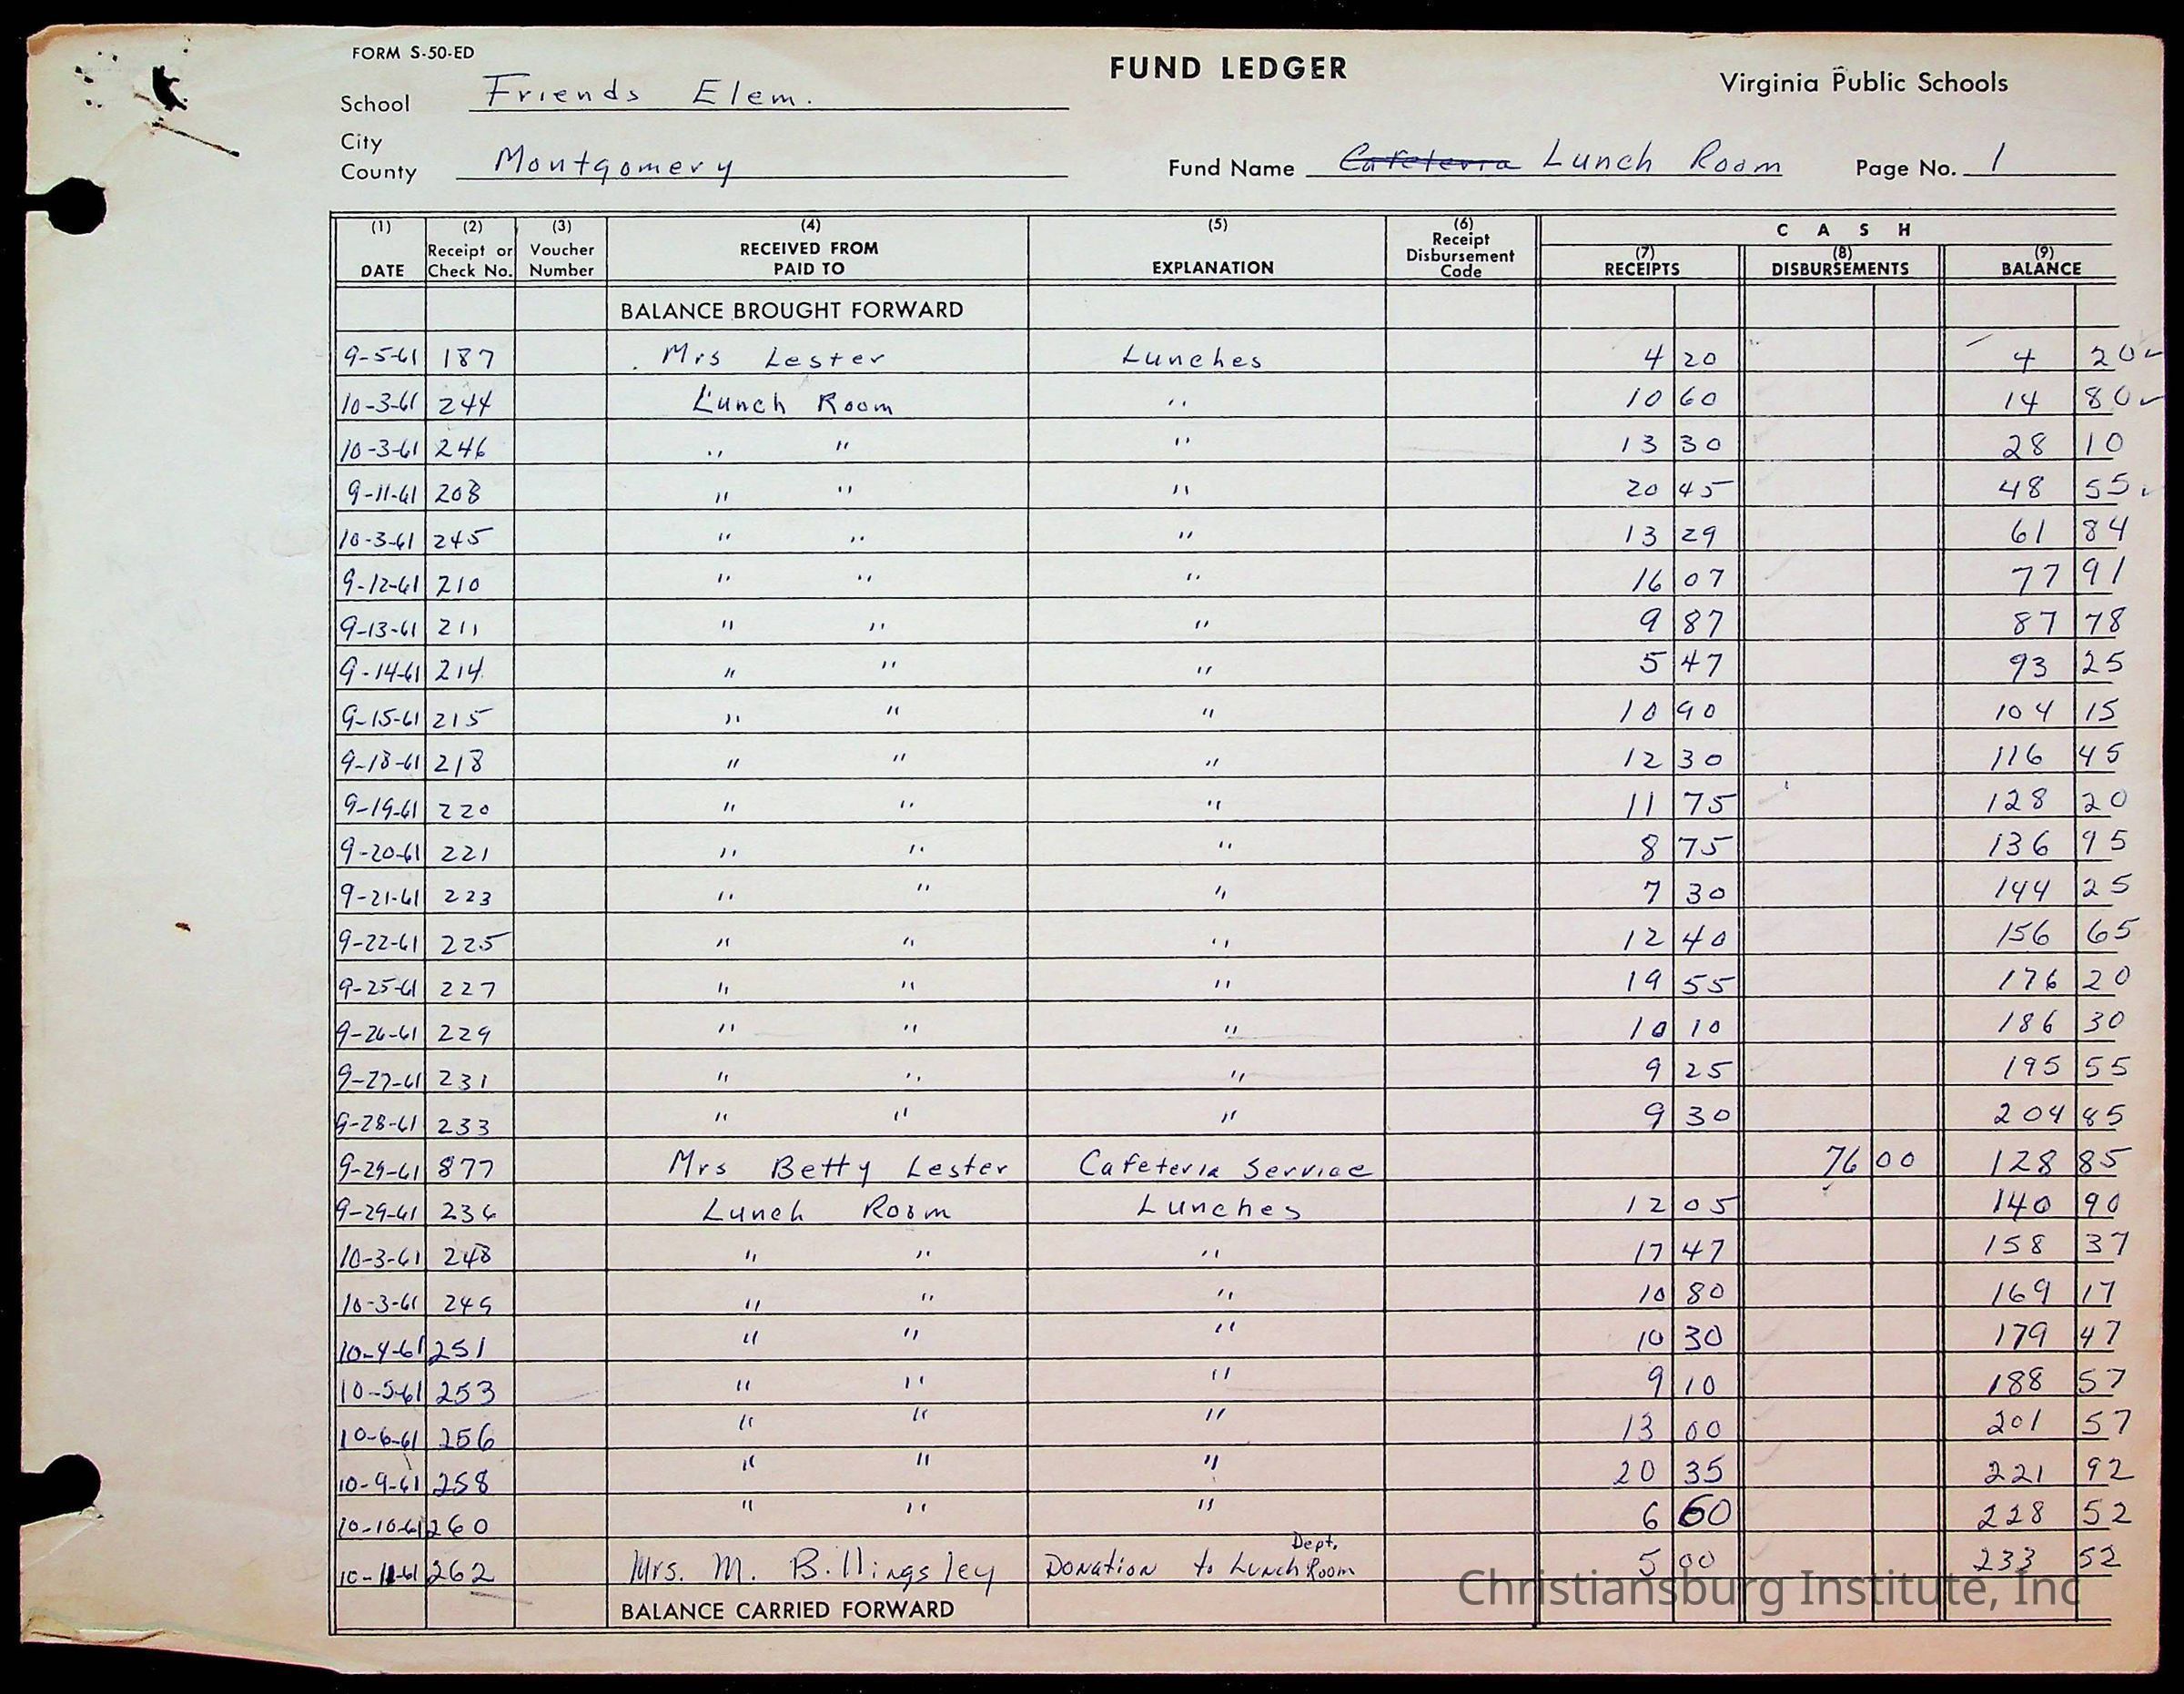 FORM S-50-ED
FUND LEDGER
Virginia Public Schools
School Friends Elem.
City
County Montgomery
Fund Name Cafeteria Lunch Room Page No. 1
(1) DATE (2) Receipt or Check No. (3) Voucher Number (4) RECEIVED FROM PAID TO (5) EXPLANATION (6) Receipt Disbursement Code CASH (7) RECEIPTS (8) DISBURSEMENTS (9) BALANCE
BALANCE BROUGHT FORWARD
9-5-61 187 Mrs Lester Lunches 4 20 4 20
10-3-61 244 Lunch Room " 10 60 14 80
10-3-61 246 " " " 13 30 28 10
9-11-61 208 " " " 20 45 48 55
10-3-61 245 " " " 13 29 61 84
9-12-61 210 " " " 16 07 77 91
9-13-61 211 " " " 9 87 87 78
9-14-61 214 " " " 5 47 93 25
9-15-61 215 " " " 10 90 104 15
9-18-61 218 " " " 12 30 116 45
9-19-61 220 " " " 11 75 128 20
9-20-61 221 " " " 8 75 136 95
9-21-61 223 " " " 7 30 144 25
9-22-61 225 " " " 12 40 156 65
9-25-61 227 " " " 19 55 176 20
9-26-61 229 " " " 10 10 186 30
9-27-61 231 " " " 9 25 195 55
9-28-61 233 " " " 9 30 204 85
9-29-61 877 Mrs Betty Lester Cafeteria Service 76 00 128 85
9-29-61 236 Lunch Room Lunches 12 05 140 90
10-3-61 248 " " " 17 47 158 37
10-3-61 249 " " " 10 80 169 17
10-4-61 251 " " " 10 30 179 47
10-5-61 253 " " " 9 10 188 57
10-6-61 256 " " " 13 00 201 57
10-9-61 258 " " " 20 35 221 92
10-10-61 260 " " " 6 60 228 52
10-11-61 262 Mrs. M. Billingsley Donation to Lunch Room Dept. 5 00 233 52
BALANCE CARRIED FORWARD
Christiansburg Institute, Inc